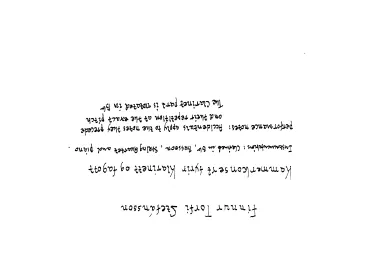 Finnur Torfi Stefánsson
Kammerkonsert fyrir klarinett og fagott
Instrumentation: Clarinet in Bb, Bassoon, String Quartet and piano.
Performance notes: Accidentals apply to the notes they precede
and their repetition at the exact pitch
The Clarinet part is notated in Bb